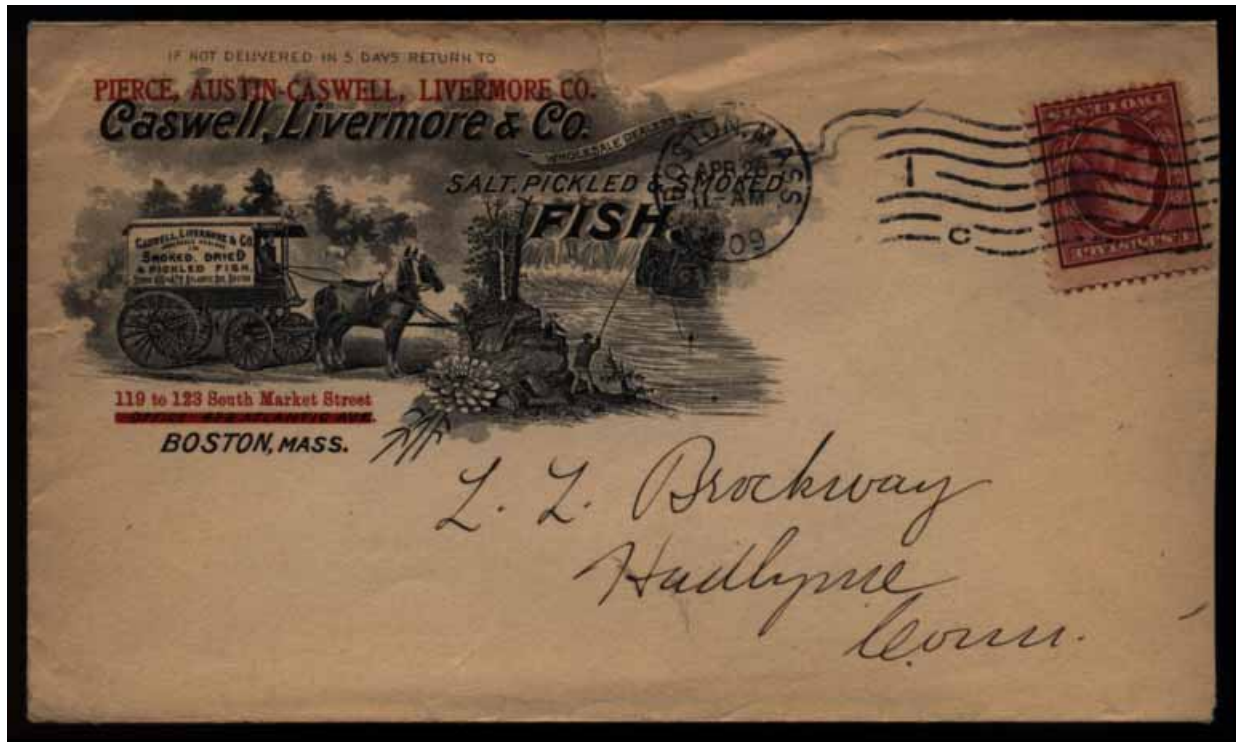 IF NOT DELIVERED IN 5 DAYS RETURN TO
PIERCE, AUSTIN-CASWELL, LIVERMORE CO.
Caswell, Livermore & Co.
WHOLESALE DEALERS IN
SALT, PICKLED & SMOKED
FISH.
CASWELL, LIVERMORE & CO.
WHOLESALE DEALERS
IN
SMOKED, DRIED
& PICKLED FISH.
ATLANTIC AVE. BOSTON
119 to 123 South Market Street
OFFICE ATLANTIC AVE.
BOSTON, MASS.
BOSTON, MASS
APR 26
11-AM
1909
1
C
L. L. Brockway
Hadlyme
Conn.